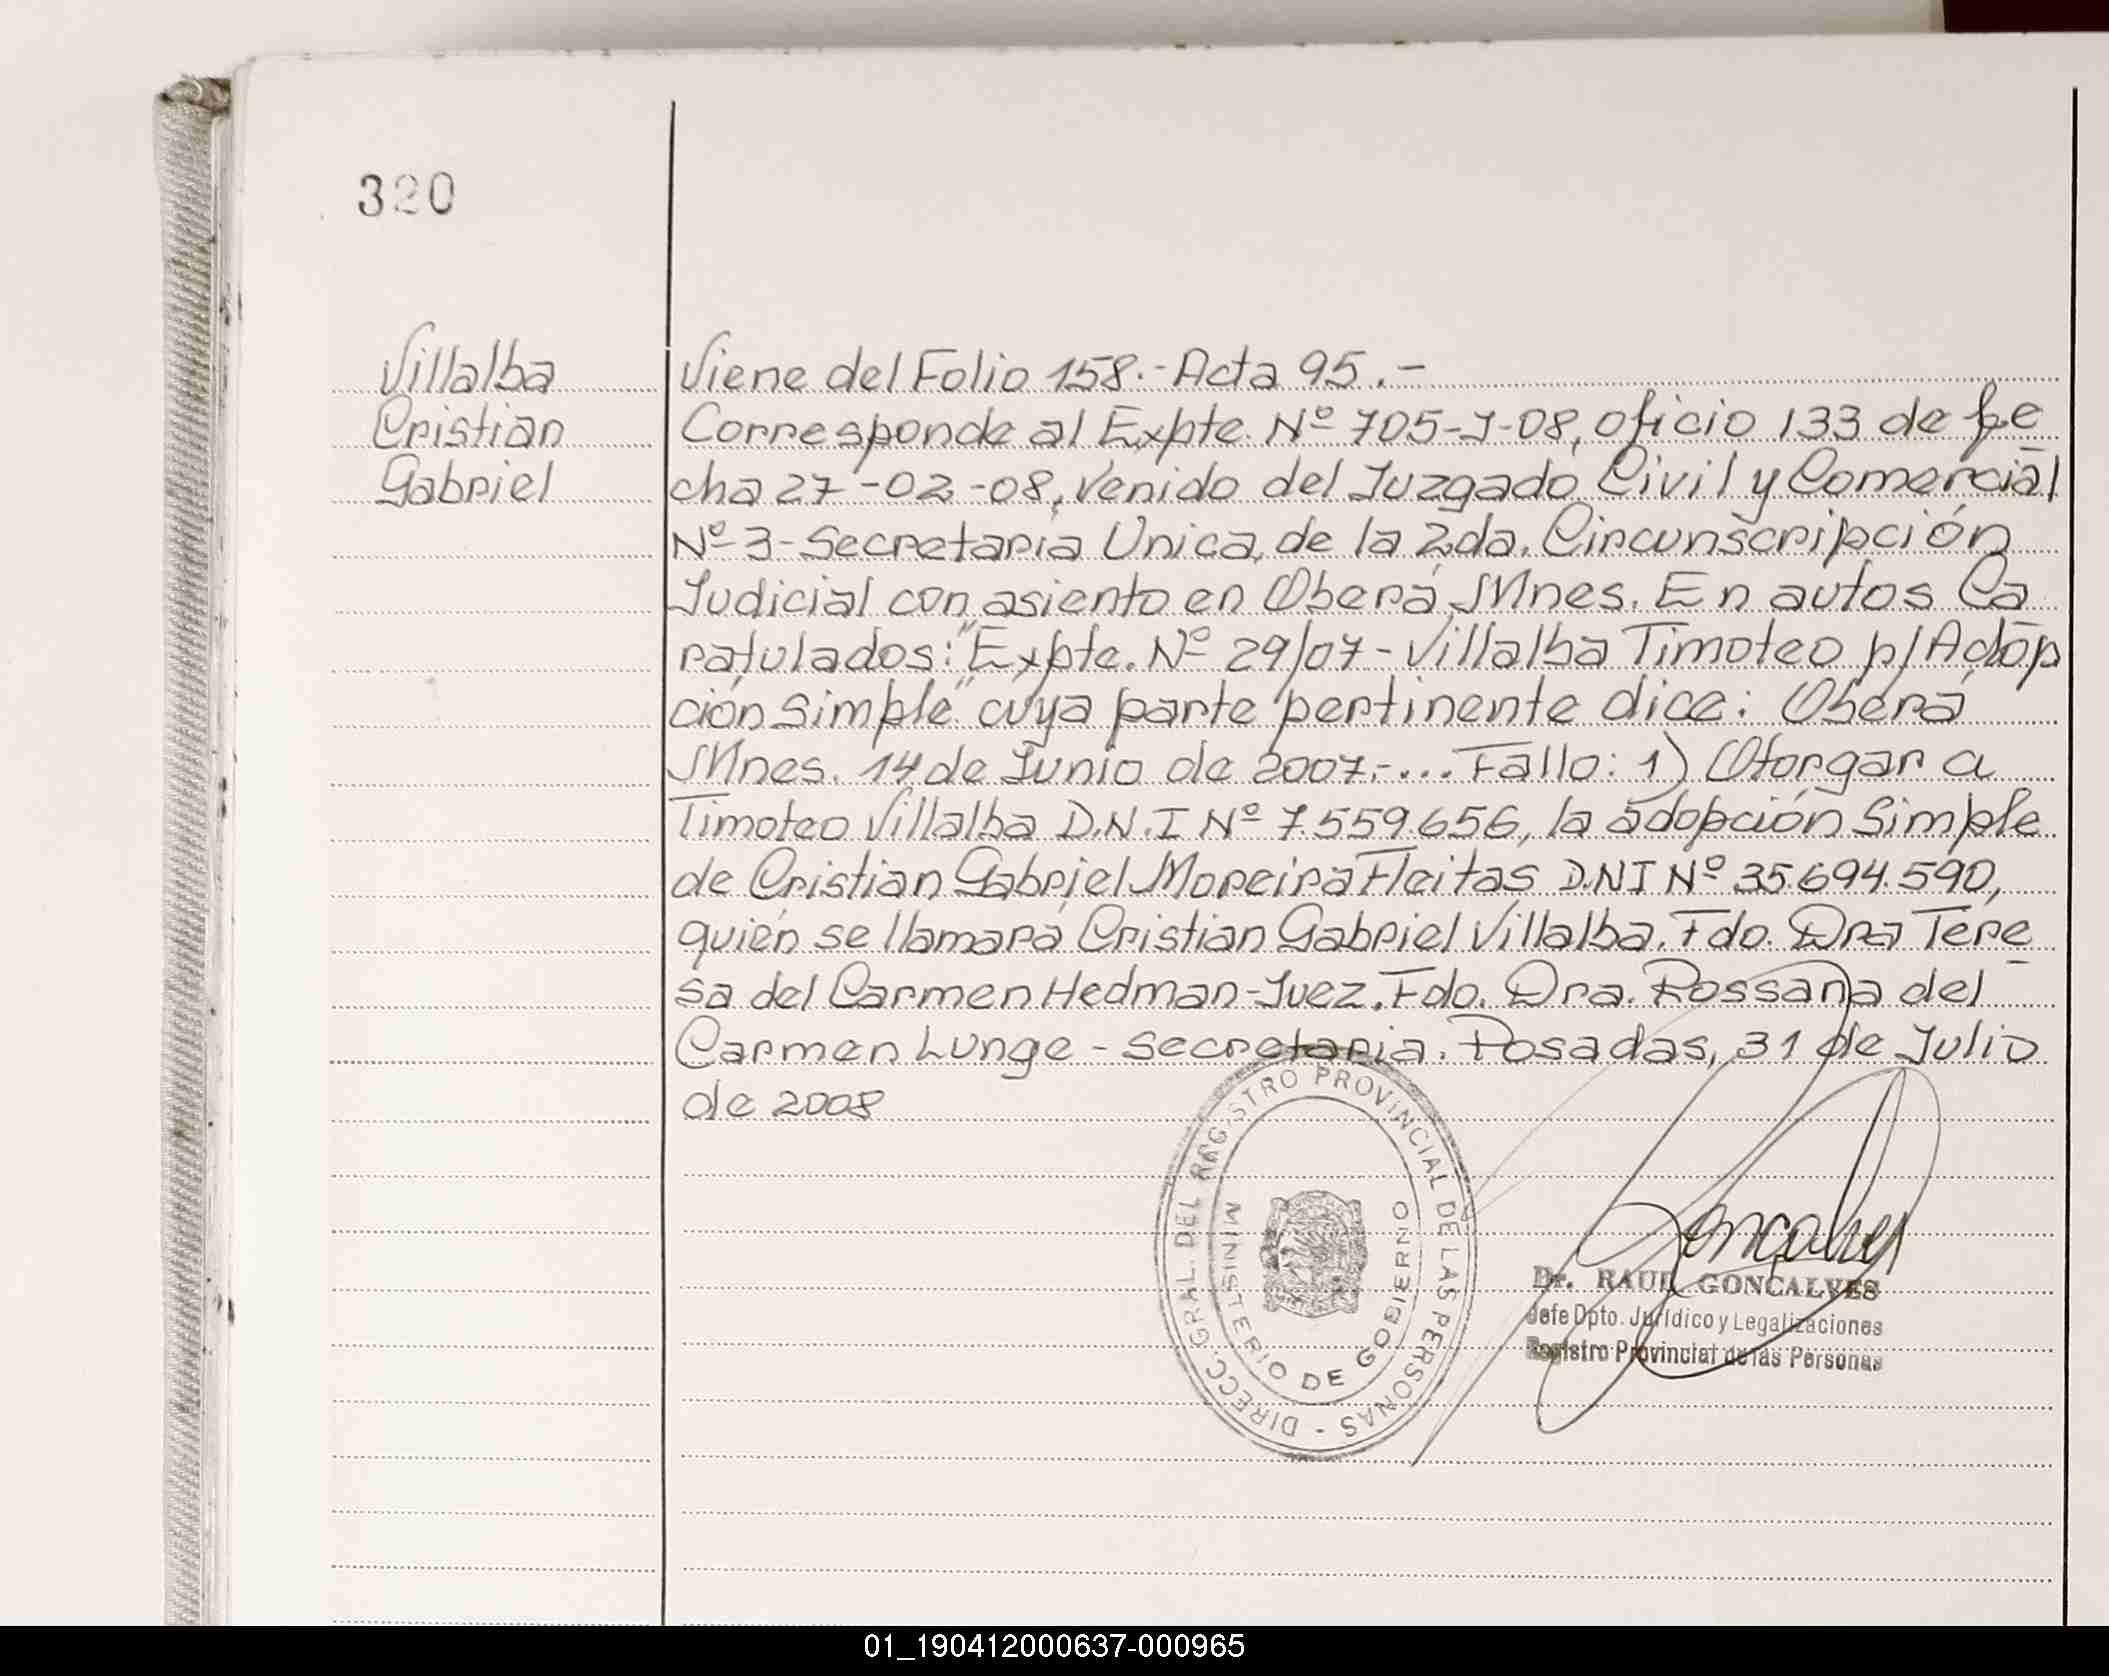 320
Villalba
Cristian
Gabriel
Viene del Folio 158.- Acta 95.-
Corresponde al Expte. Nº 705-J-08, oficio 133 de fe
cha 27-02-08, venido del Juzgado Civil y Comercial
Nº 3- Secretaría Unica, de la 2da. Circunscripción
Judicial con asiento en Oberá, Mnes. En autos Ca
ratulados: "Expte. Nº 29/07- Villalba Timoteo p/ Adop
ción Simple" cuya parte pertinente dice: Oberá
Mnes. 14 de Junio de 2007.-... Fallo: 1) Otorgar a
Timoteo Villalba D.N.I Nº 7.559.656, la adopción Simple
de Cristian Gabriel Moreira Fleitas D.N.I Nº 35.694.590,
quién se llamará Cristian Gabriel Villalba. Fdo. Dra Tere
sa del Carmen Hedman-Juez. Fdo. Dra. Rossana del
Carmen Lunge - Secretaria. Posadas, 31 de Julio
de 2008
DIRECC. GRAL. DEL REGISTRO PROVINCIAL DE LAS PERSONAS -
MINISTERIO DE GOBIERNO
Goncalves
Dr. RAUL GONCALVES
Jefe Dpto. Jurídico y Legalizaciones
Registro Provincial de las Personas
01_190412000637-000965